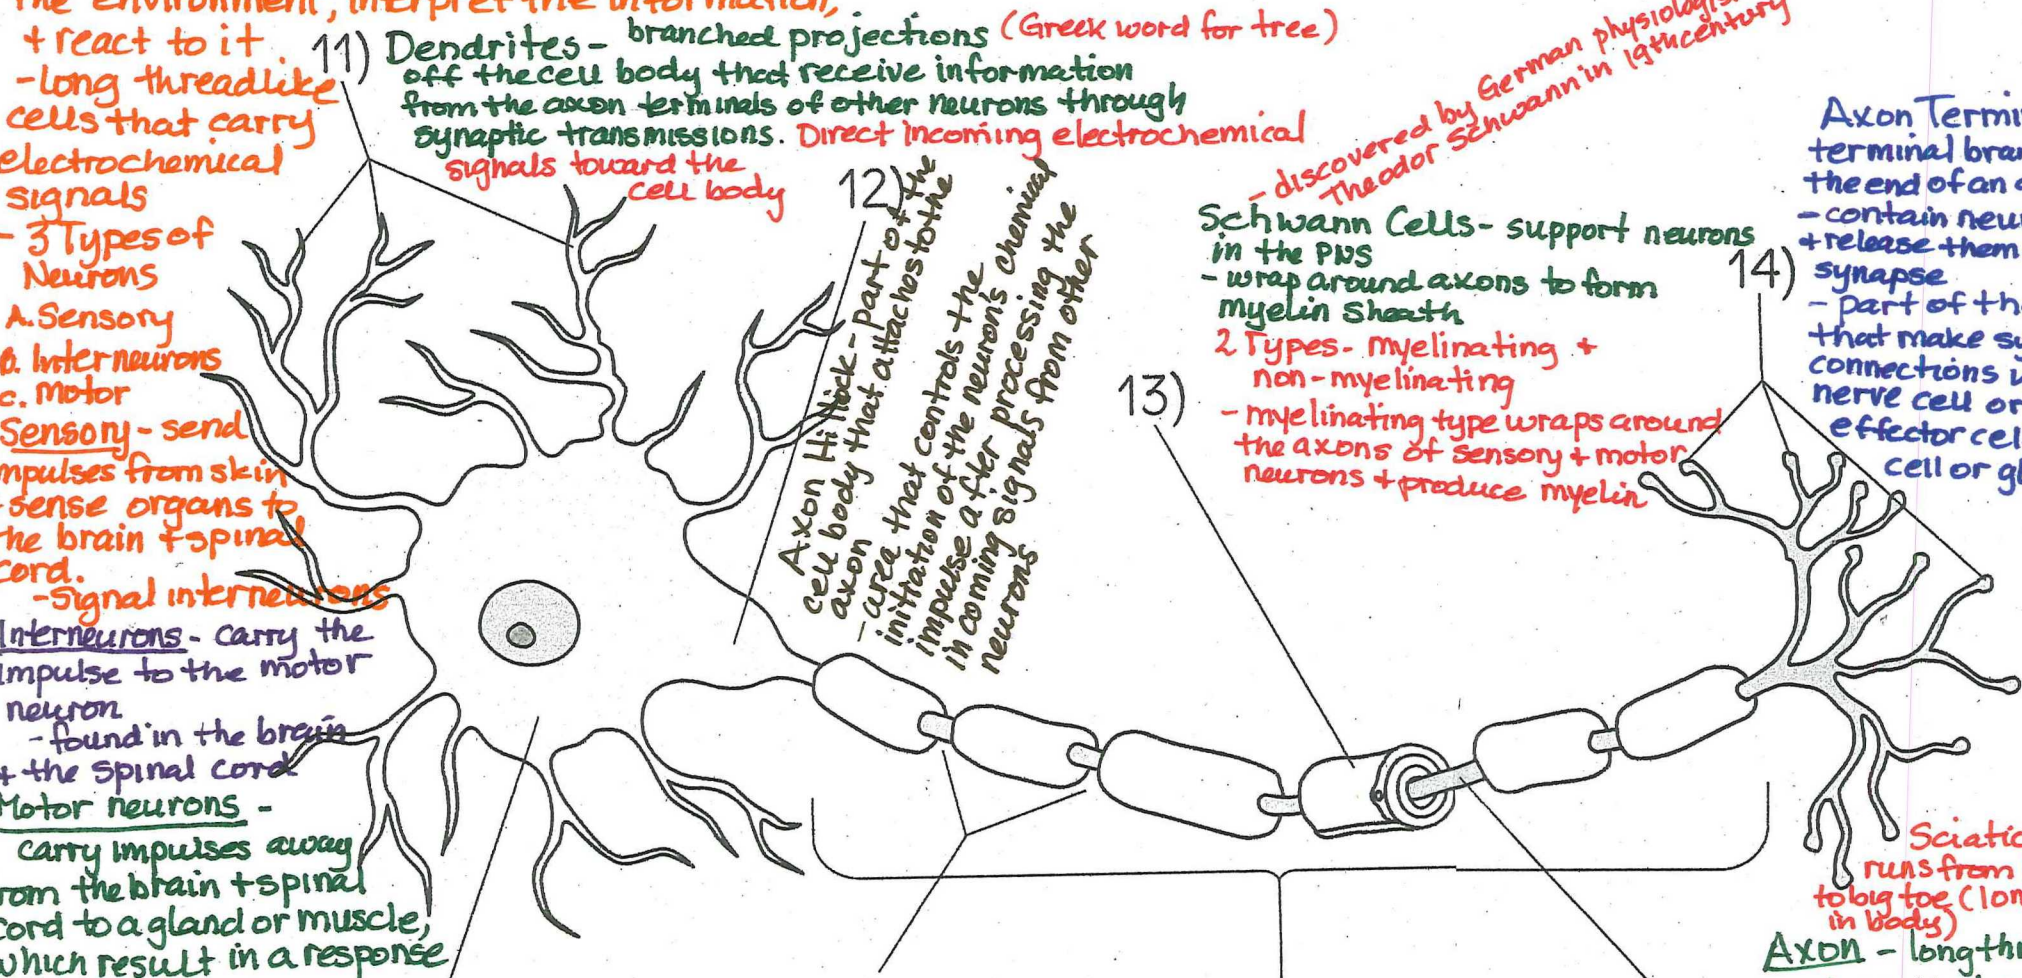 the environment, interpret the information,
+ react to it
- long threadlike
cells that carry
electrochemical
signals
- 3 Types of
Neurons
A. Sensory
B. Interneurons
C. Motor
Sensory - send
impulses from skin
sense organs to
the brain + spinal
cord.
- Signal interneurons
Interneurons - carry the
impulse to the motor
neuron
- found in the brain
+ the spinal cord
Motor neurons -
carry impulses away
from the brain + spinal
cord to a gland or muscle,
which result in a response
11) Dendrites - branched projections (Greek word for tree)
off the cell body that receive information
from the axon terminals of other neurons through
synaptic transmissions. Direct incoming electrochemical
signals toward the
cell body
12)
Axon Hillock - part of the
cell body that attaches to the
axon
- area that controls the
initiation of the neuron's chemical
impulse a after processing the
incoming signals from other
neurons
- discovered by German physiologis
Theodor Schwann in 19th century
Schwann Cells - support neurons
in the PNS
- wrap around axons to form
myelin Sheath
2 Types - myelinating +
non-myelinating
- myelinating type wraps around
the axons of sensory + motor
neurons + produce myelin
13)
14)
Axon Termi
terminal bra
the end of an
- contain neu
+ release them
synapse
- part of th
that make sy
connections
nerve cell or
effector cel
cell or gl
Sciatic
runs from
to big toe (lon
in body)
Axon - long th